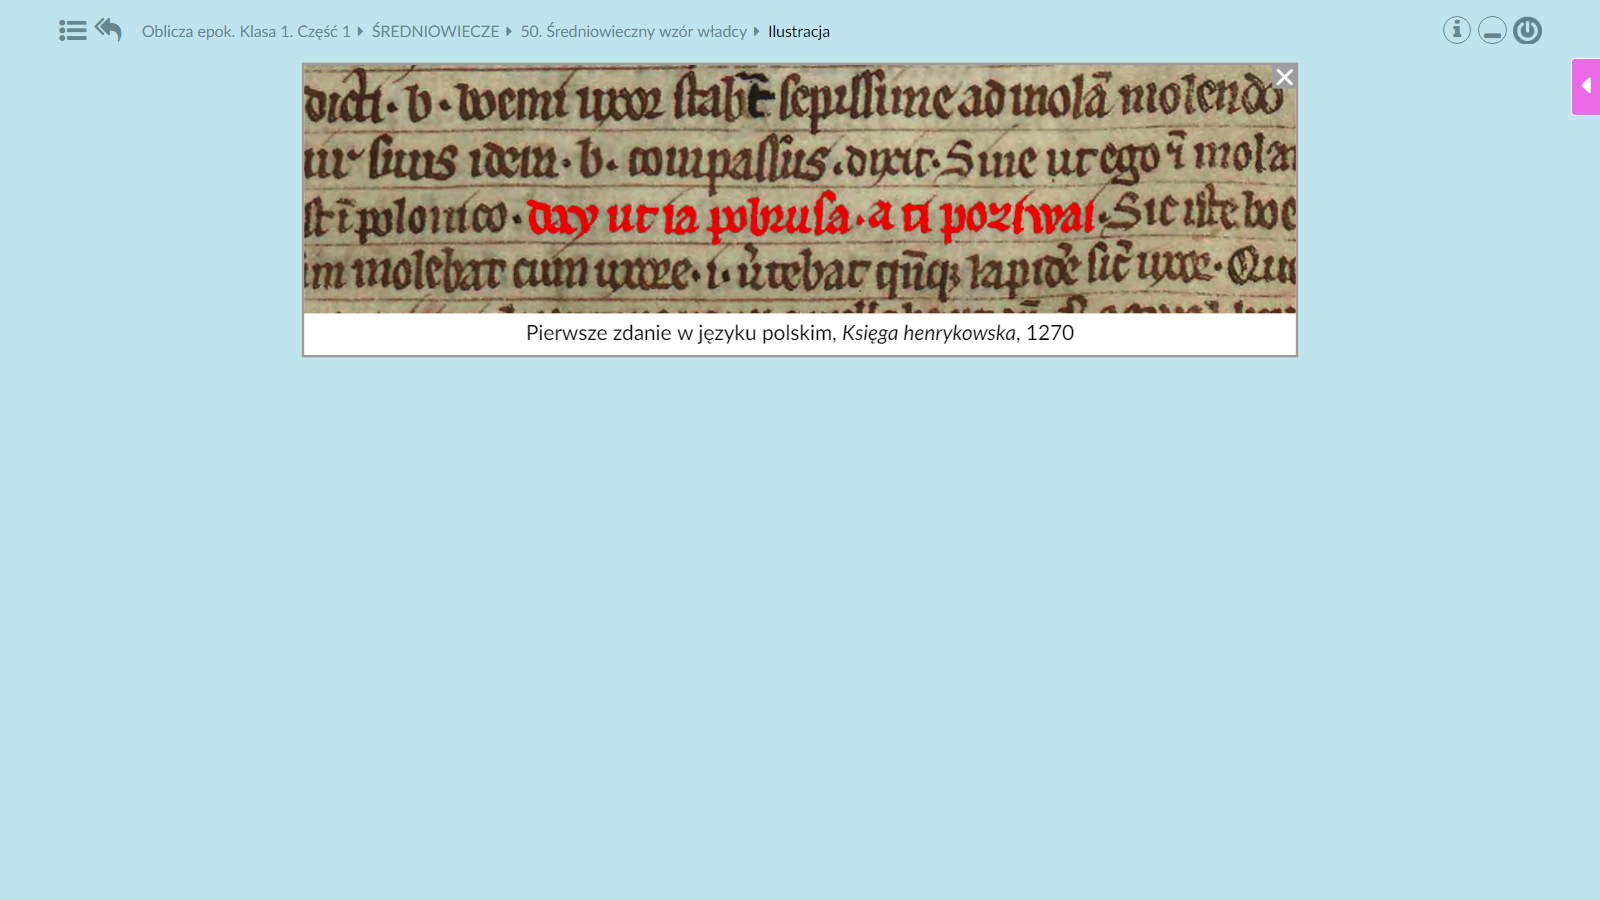 Oblicza epok. Klasa 1. Część 1 ŚREDNIOWIECZE 50. Średniowieczny wzór władcy Ilustracja
dicti · b · boemi uxor stabat sepissime ad molā molendo
ur suus idem · b · compassus · dixit · Sine ut ego ī mola
st ī polonico · day ut ia pobrusa · a ti poziwai · Sic iste boe
im molebat cum uxore · i · vertebat
Pierwsze zdanie w języku polskim, Księga henrykowska, 1270